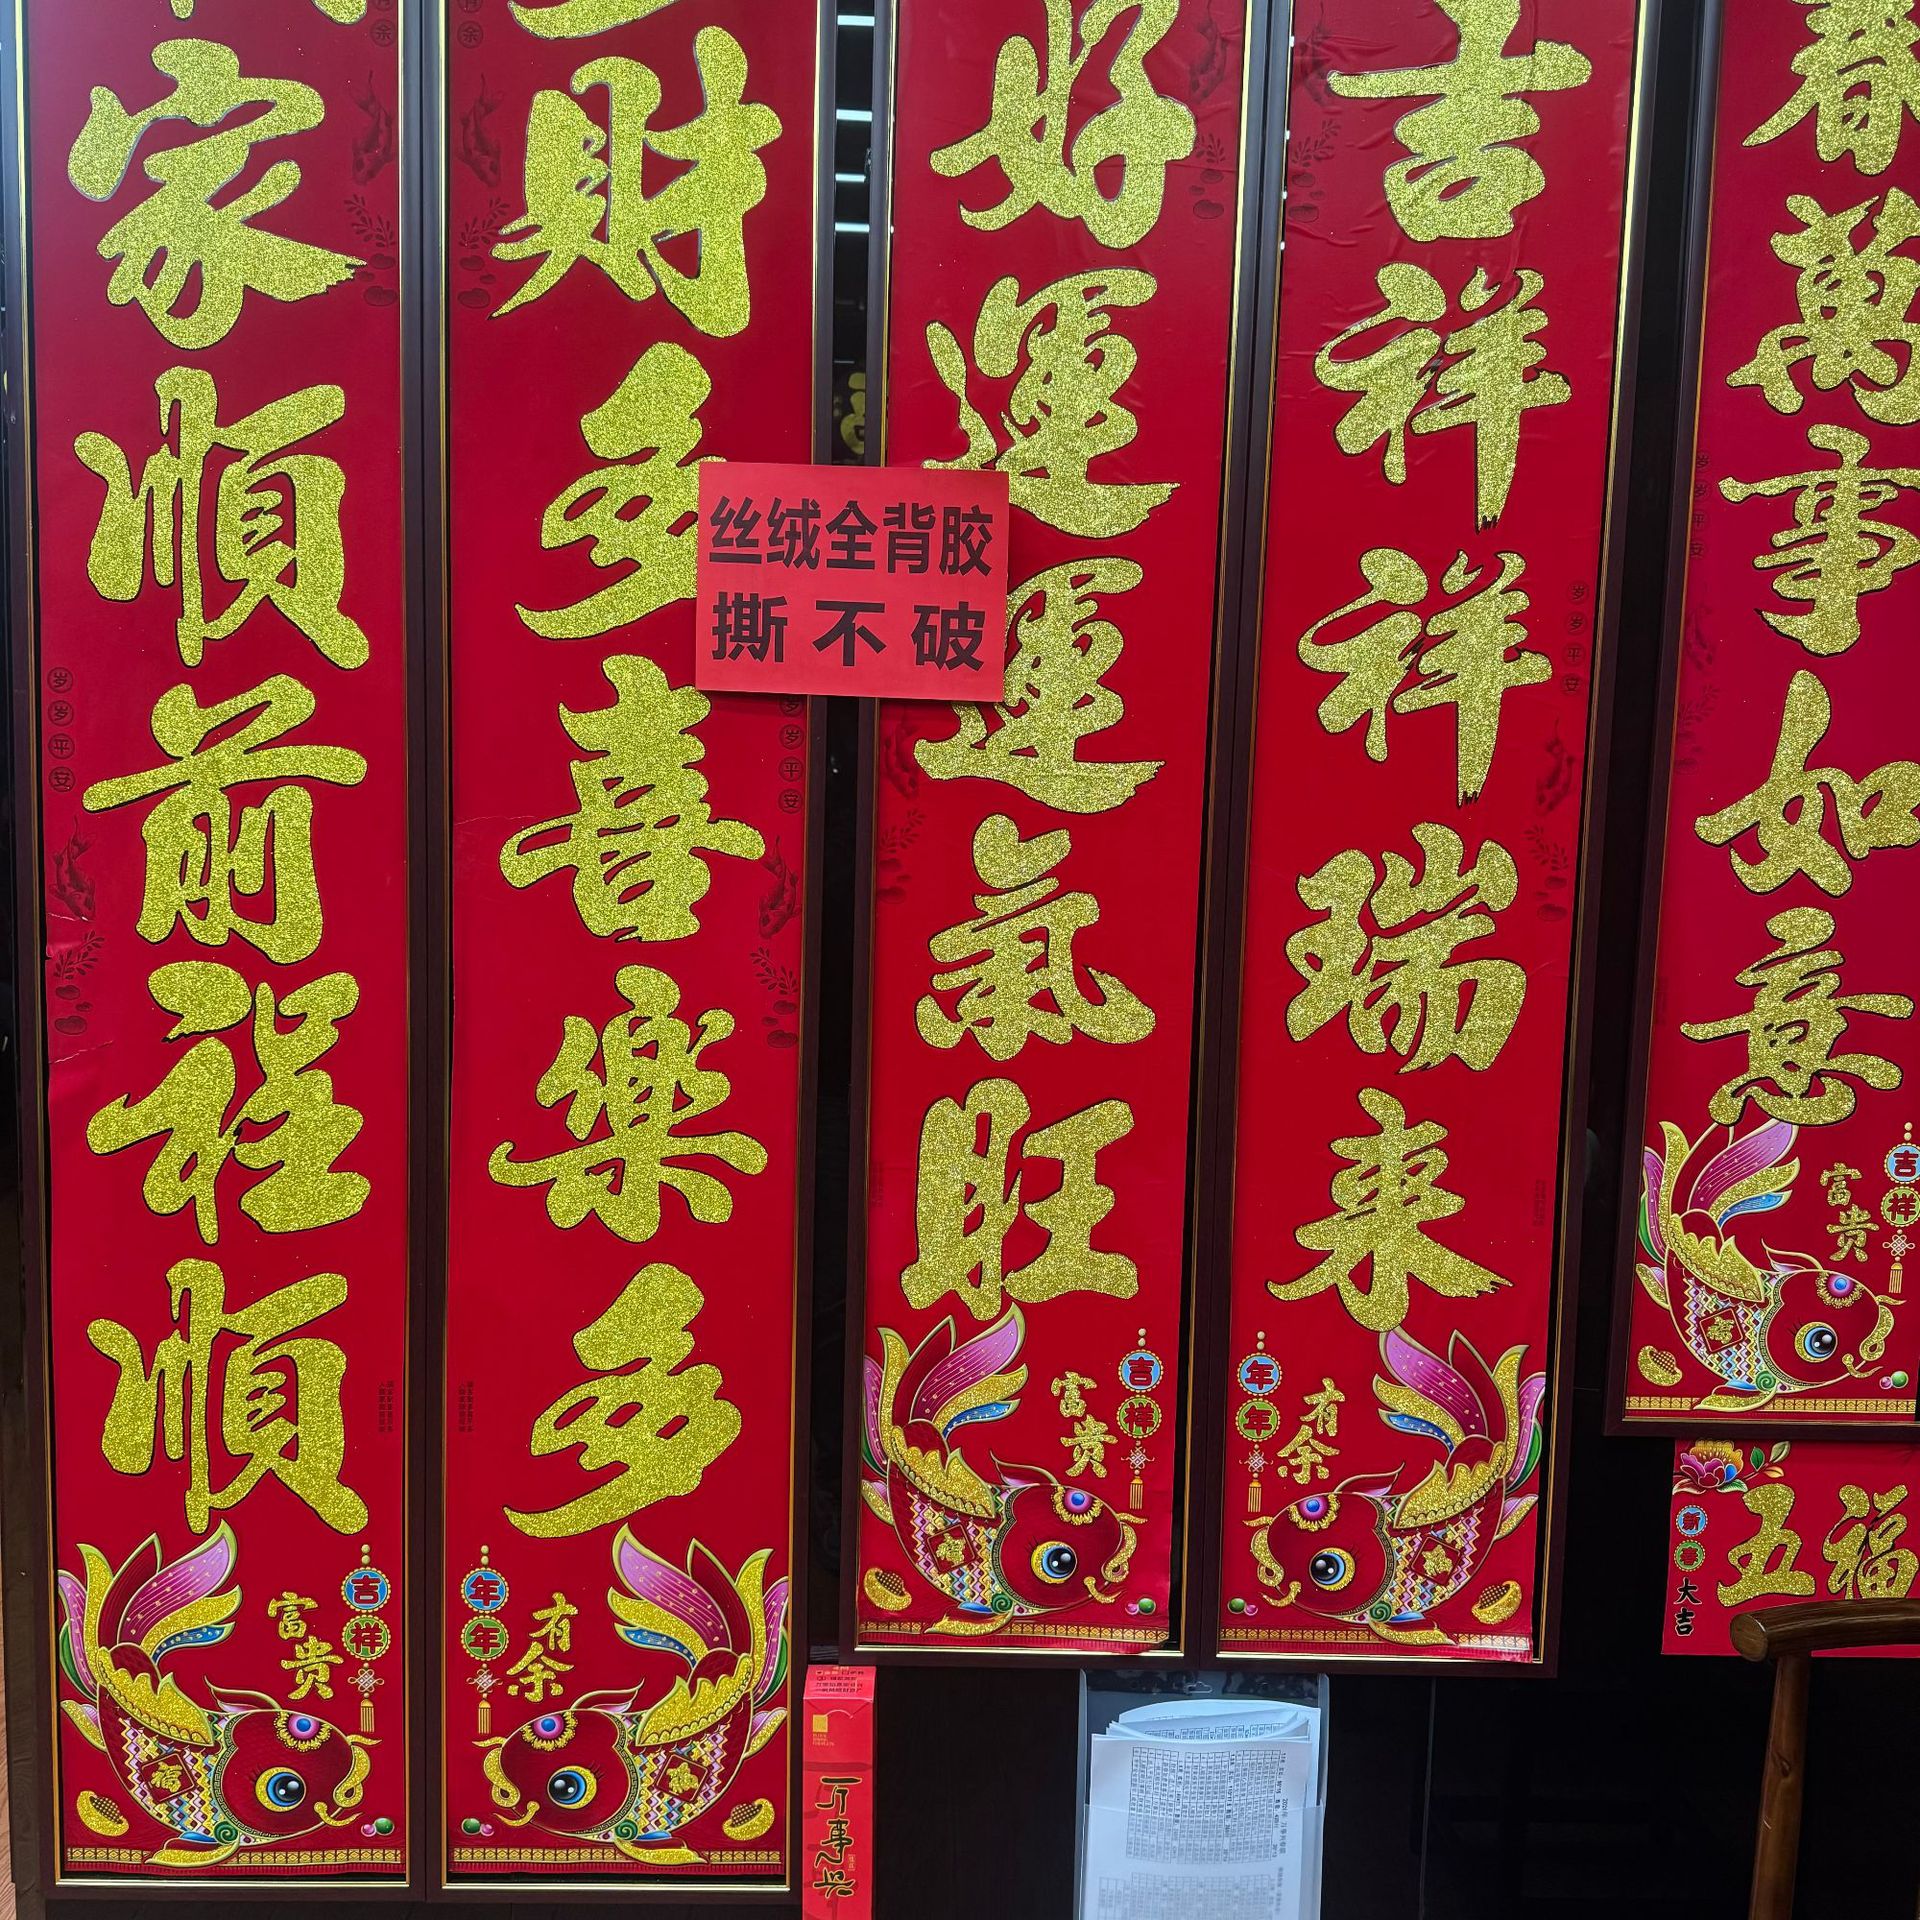 家順前程順
財多喜樂多
好運運氣旺
吉祥祥瑞来
春萬事如意
丝绒全背胶
撕不破
岁岁平安
岁岁平安
岁岁平安
吉祥
富贵
年年
有余
吉祥
富贵
年年
有余
吉祥
富贵
福
五福
新春大吉
万事兴